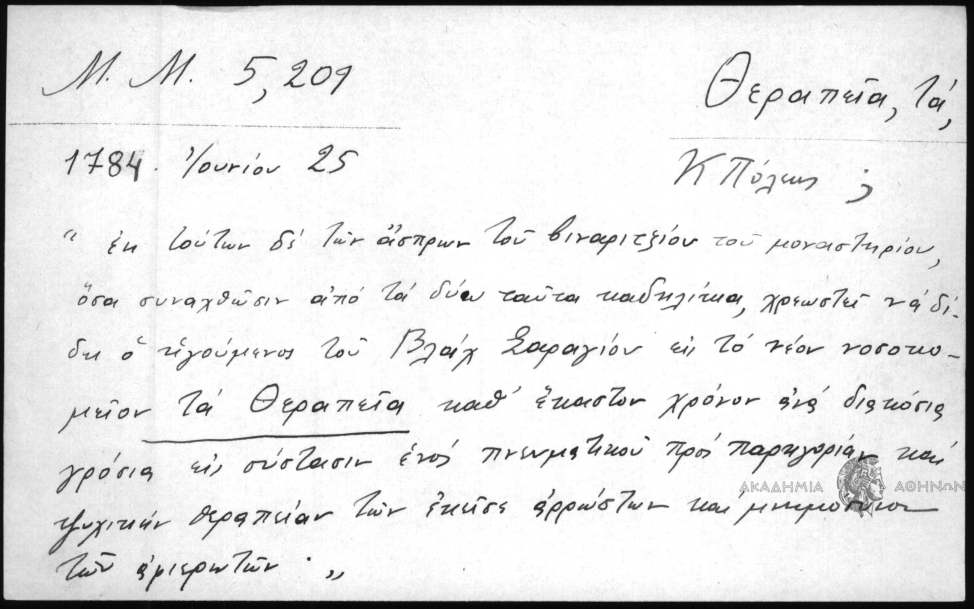 Μ. Μ. 5, 209
Θεραπεῖα, τά,
1784. Ἰουνίου 25
ΚΠόλεως ;
" ἐκ τούτων δέ τῶν ἄσπρων τοῦ βιναριτζίου τοῦ μοναστηρίου,
ὅσα συναχθῶσιν ἀπό τά δύω ταῦτα καδηλίκια, χρεωστεῖ νά δί-
δῃ ὁ ἡγούμενος τοῦ Βλάχ Σαραγίου εἰς τό νέον νοσοκο-
μεῖον τά Θεραπεῖα καθ' ἕκαστον χρόνον ἀνά διακόσια
γρόσια εἰς σύστασιν ἑνός πνευματικοῦ πρός παρηγορίαν καί
ψυχικήν θεραπείαν τῶν ἐκεῖσε ἀρρώστων καί
τῶν ἀφιερωτῶν . "
ΑΚΑΔΗΜΙΑ ΑΘΗΝΩΝ